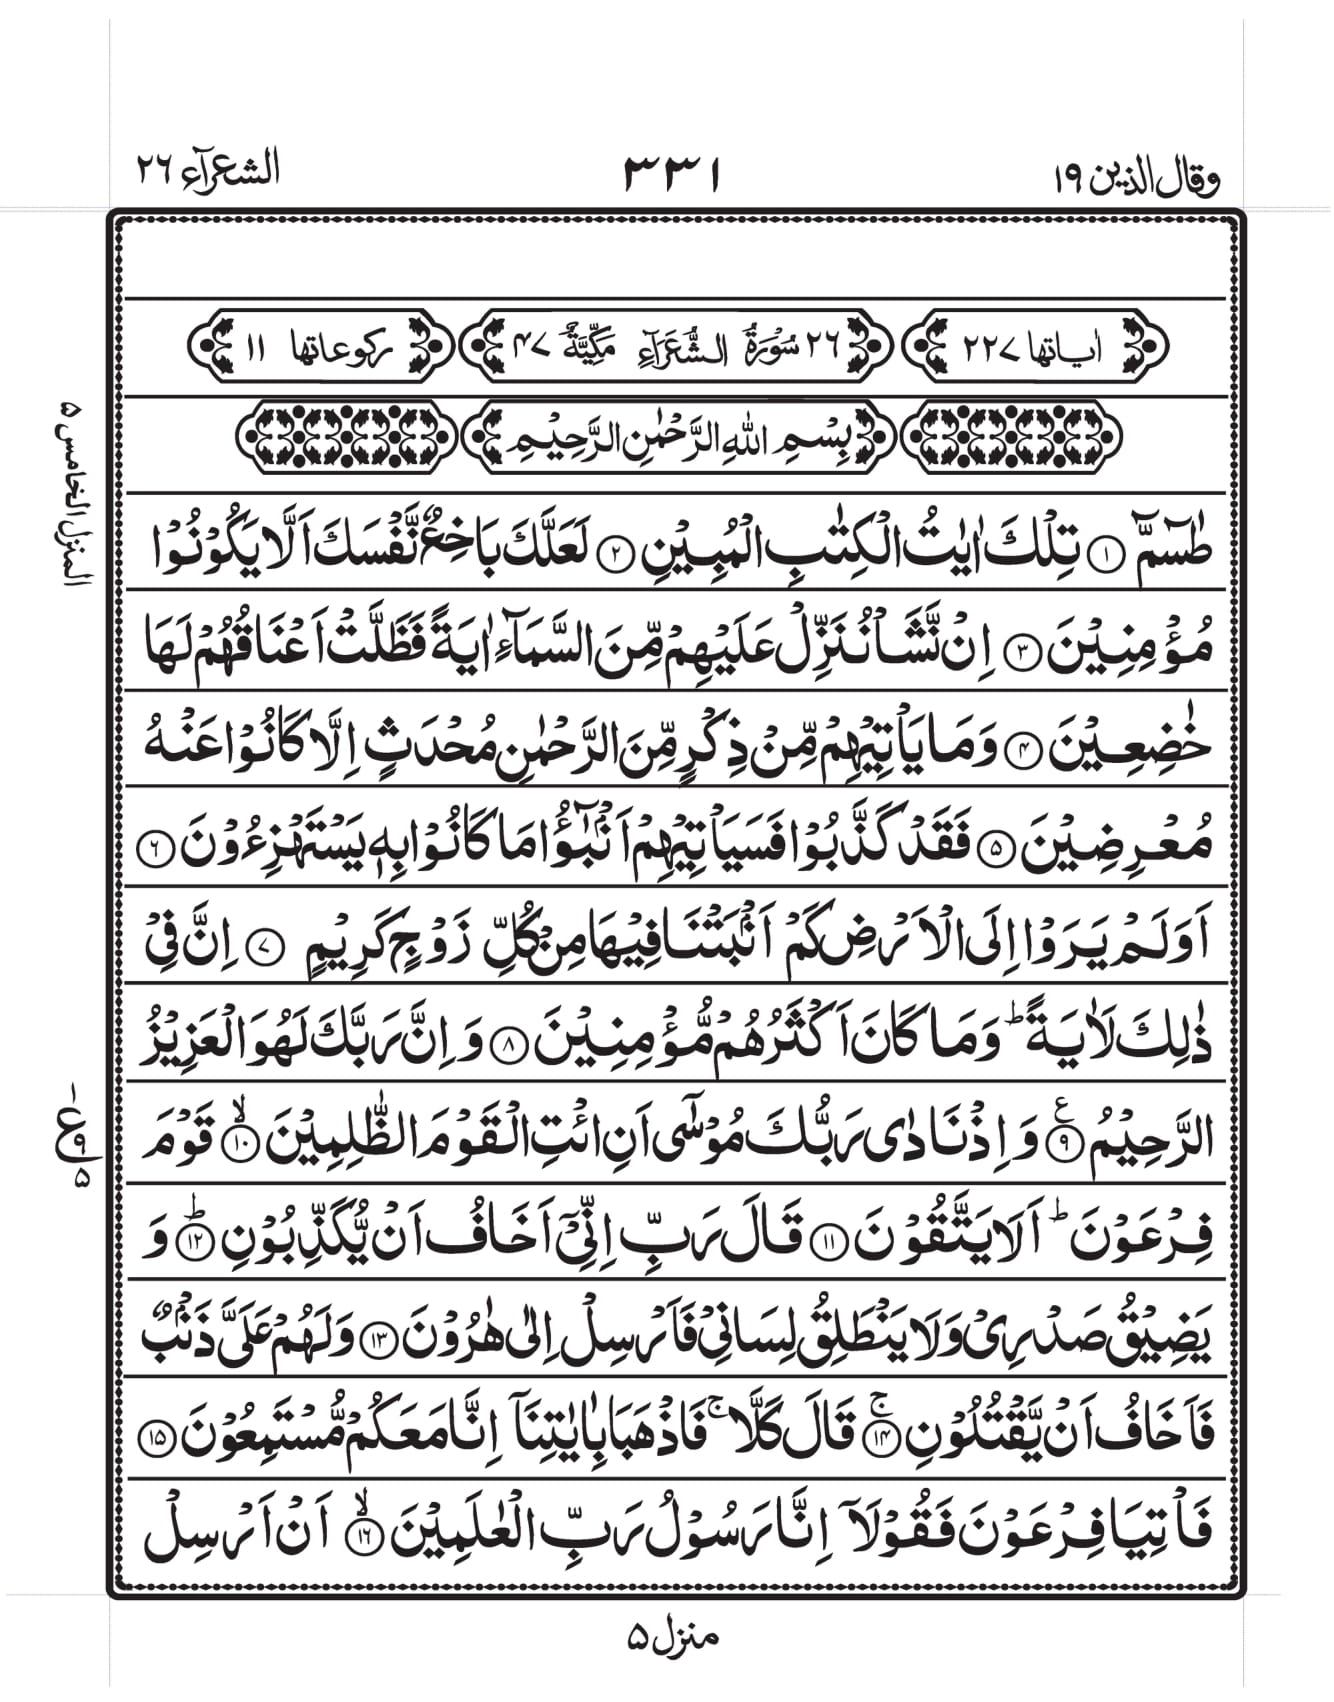 وقال الذين ١٩
٣٣١
الشعرآء ٢٦
اٰياتها ٢٢٧
٢٦ سُوْرَةُ الشُّعَرَآءِ مَكِّيَّةٌ ٤٧
ركوعاتها ١١
بِسْمِ اللهِ الرَّحْمٰنِ الرَّحِيْمِ
المنزل الخامس ۵
طٰسٓمّٓ ۝١ تِلْكَ اٰيٰتُ الْكِتٰبِ الْمُبِيْنِ ۝٢ لَعَلَّكَ بَاخِعٌ نَّفْسَكَ اَلَّا يَكُوْنُوْا
مُؤْمِنِيْنَ ۝٣ اِنْ نَّشَاْ نُنَزِّلْ عَلَيْهِمْ مِّنَ السَّمَآءِ اٰيَةً فَظَلَّتْ اَعْنَاقُهُمْ لَهَا
خٰضِعِيْنَ ۝٤ وَمَا يَاْتِيْهِمْ مِّنْ ذِكْرٍ مِّنَ الرَّحْمٰنِ مُحْدَثٍ اِلَّا كَانُوْا عَنْهُ
مُعْرِضِيْنَ ۝۵ فَقَدْ كَذَّبُوْا فَسَيَاْتِيْهِمْ اَنْۢبٰٓؤُا مَا كَانُوْا بِهٖ يَسْتَهْزِءُوْنَ ۝٦
اَوَلَمْ يَرَوْا اِلَى الْاَرْضِ كَمْ اَنْۢبَتْنَا فِيْهَا مِنْ كُلِّ زَوْجٍ كَرِيْمٍ ۝٧ اِنَّ فِيْ
ذٰلِكَ لَاٰيَةً ؕ وَمَا كَانَ اَكْثَرُهُمْ مُّؤْمِنِيْنَ ۝٨ وَاِنَّ رَبَّكَ لَهُوَ الْعَزِيْزُ
الرَّحِيْمُ ۝٩ ع وَاِذْ نَادٰى رَبُّكَ مُوْسٰٓى اَنِ ائْتِ الْقَوْمَ الظّٰلِمِيْنَ ۝١٠ۙ قَوْمَ
ع ٩ ۵
فِرْعَوْنَ ؕ اَلَا يَتَّقُوْنَ ۝١١ قَالَ رَبِّ اِنِّيْٓ اَخَافُ اَنْ يُّكَذِّبُوْنِ ۝١٢ؕ وَ
يَضِيْقُ صَدْرِيْ وَلَا يَنْطَلِقُ لِسَانِيْ فَاَرْسِلْ اِلٰى هٰرُوْنَ ۝١٣ وَلَهُمْ عَلَيَّ ذَنْۢبٌ
فَاَخَافُ اَنْ يَّقْتُلُوْنِ ۝١٤ۚ قَالَ كَلَّا ۚ فَاذْهَبَا بِاٰيٰتِنَآ اِنَّا مَعَكُمْ مُّسْتَمِعُوْنَ ۝١۵
فَاْتِيَا فِرْعَوْنَ فَقُوْلَآ اِنَّا رَسُوْلُ رَبِّ الْعٰلَمِيْنَ ۝١٦ۙ اَنْ اَرْسِلْ
منزل ۵